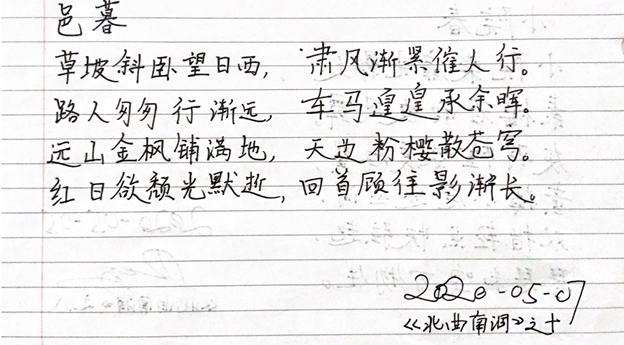 邑暮
草坡斜卧望日西，肃风渐紧催人行。
路人匆匆行渐远，车马遑遑承余晖。
远山金枫铺满地，天边粉樱散苍穹。
红日欲颓光默逝，回首顾往影渐长。
2020-05-07
《北曲南调》之十